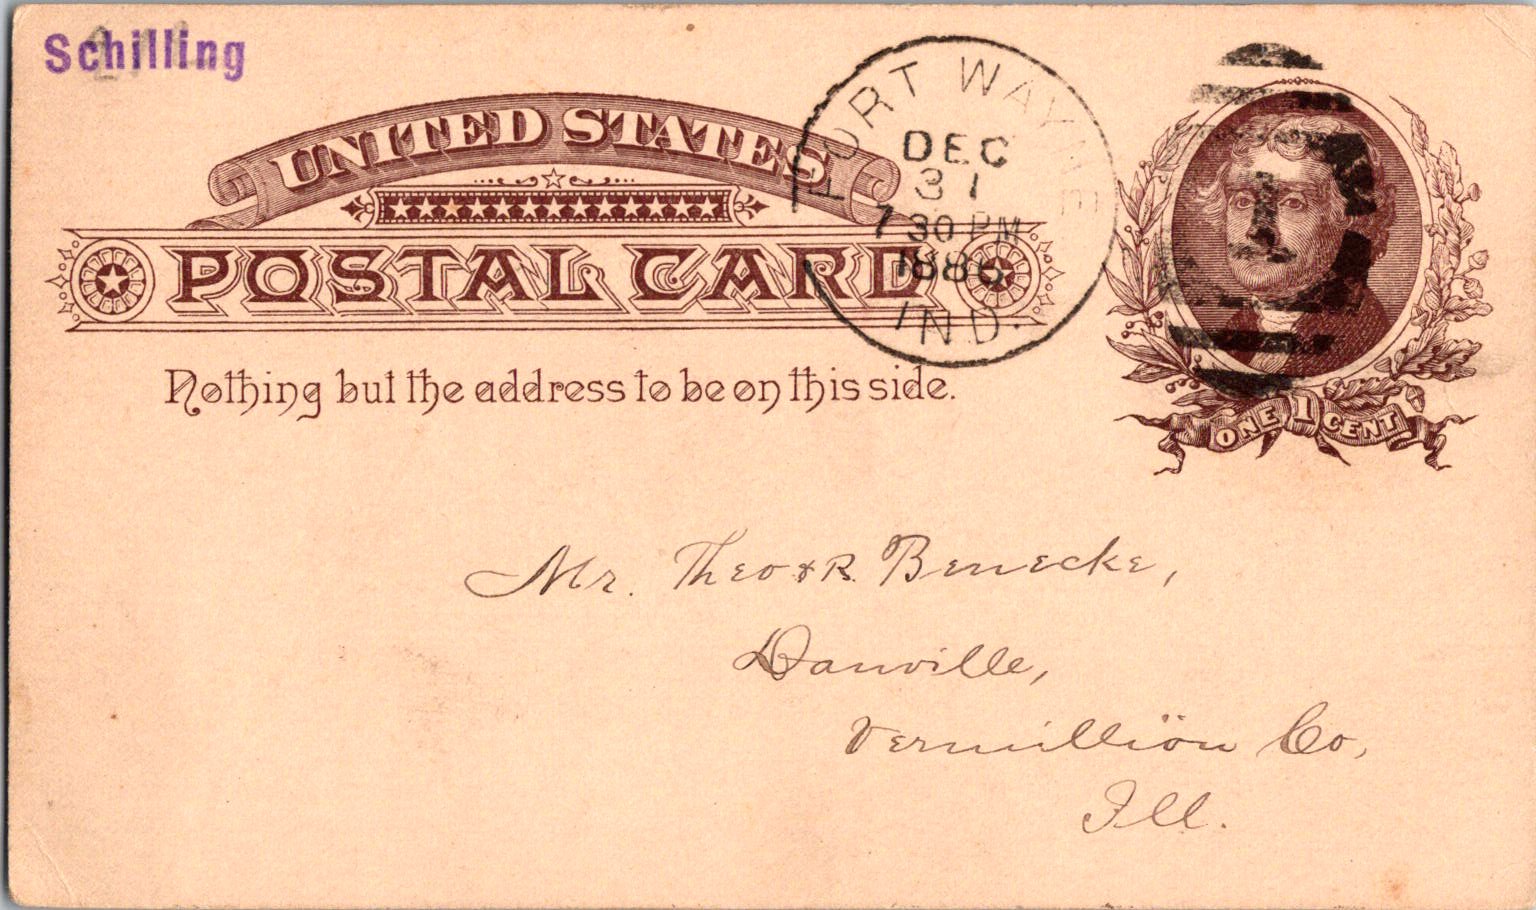 Schilling
UNITED STATES
POSTAL CARD
Nothing but the address to be on this side.
FORT WAYNE
DEC
31
7 30 PM
1886
IND.
1
ONE 1 CENT
Mr. Theo & R. Benecke,
Danville,
Vermilliön Co,
Ill.